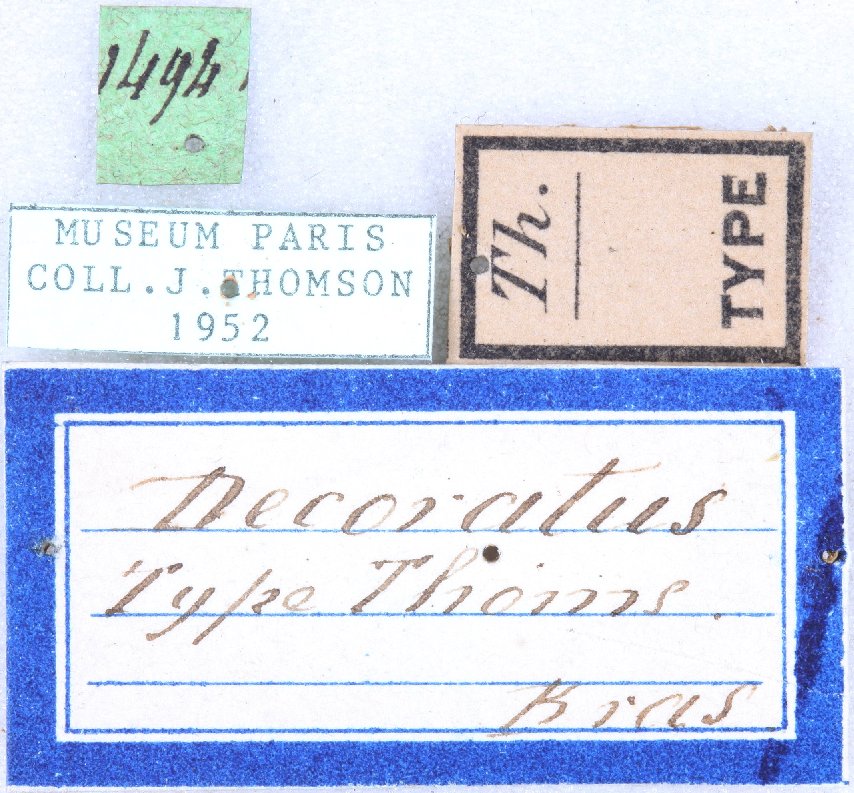 1494
MUSEUM PARIS
COLL.J.THOMSON
1952
Th.
TYPE
Decoratus
Type Thoms.
Bras